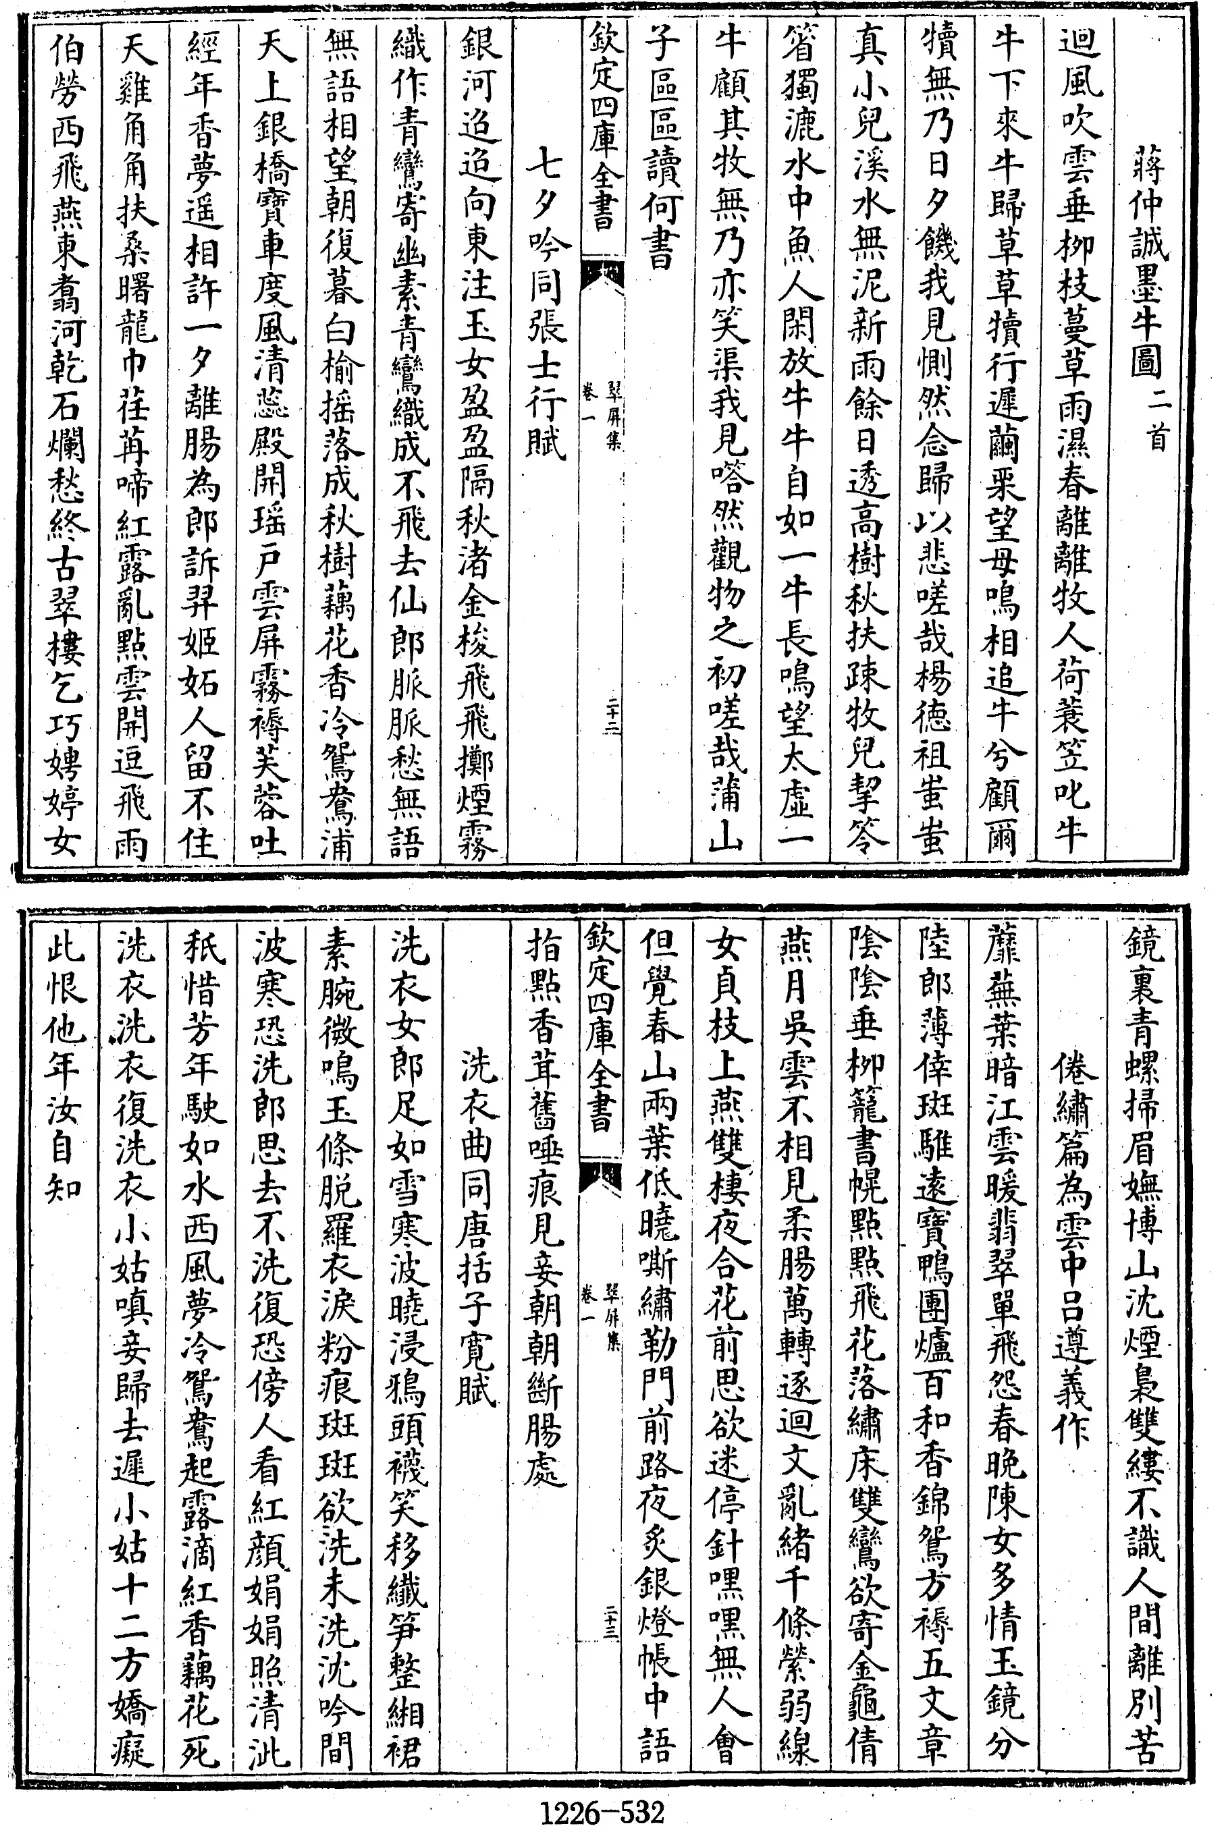 蔣仲誠墨牛圖二首
迴風吹雲垂柳枝蔓草雨濕春離離牧人荷蓑笠叱牛
牛下來牛歸草草犢行遲繭栗望母鳴相追牛兮顧爾
犢無乃日夕饑我見惻然念歸以悲嗟哉楊德祖蚩蚩
真小兒溪水無泥新雨餘日透高樹秋扶疎牧兒挈笭
箵獨漉水中魚人閑放牛牛自如一牛長鳴望太虛一
牛顧其牧無乃亦笑渠我見嗒然觀物之初嗟哉蒲山
子區區讀何書
欽定四庫全書
翠屏集
卷一
二十二
七夕吟同張士行賦
銀河迢迢向東注玉女盈盈隔秋渚金梭飛飛擲煙霧
織作青鸞寄幽素青鸞織成不飛去仙郎脈脈愁無語
無語相望朝復暮白榆搖落成秋樹藕花香冷鴛鴦浦
天上銀橋寶車度風清蕊殿開瑤戶雲屏霧褥芙蓉吐
經年香夢遥相許一夕離腸為郎訴羿姬妬人留不住
天雞角角扶桑曙龍巾荏苒啼紅露亂點雲開逗飛雨
伯勞西飛燕東翥河乾石爛愁終古翠樓乞巧娉婷女
鏡裏青螺掃眉嫵博山沈煙裊雙縷不識人間離別苦
倦繡篇為雲中吕遵義作
蘼蕪葉暗江雲暖翡翠單飛怨春晚陳女多情玉鏡分
陸郎薄倖斑騅遠寶鴨團爐百和香錦鴛方褥五文章
陰陰垂柳籠書幌點點飛花落繡床雙鸞欲寄金龜倩
燕月吳雲不相見柔腸萬轉逐迴文亂緒千條縈弱線
女貞枝上燕雙棲夜合花前思欲迷停針嘿嘿無人會
但覺春山兩葉低曉嘶繡勒門前路夜炙銀燈帳中語
指點香茸舊唾痕見妾朝朝斷腸處
欽定四庫全書
翠屏集
卷一
二十三
洗衣曲同唐括子寬賦
洗衣女郎足如雪寒波曉浸鴉頭襪笑移纖笋整緗裙
素腕微鳴玉條脱羅衣淚粉痕斑斑欲洗未洗沈吟間
波寒恐洗郎思去不洗復恐傍人看紅顏娟娟照清泚
秖惜芳年駛如水西風夢冷鴛鴦起露滴紅香藕花死
洗衣洗衣復洗衣小姑嗔妾歸去遲小姑十二方嬌癡
此恨他年汝自知
1226-532